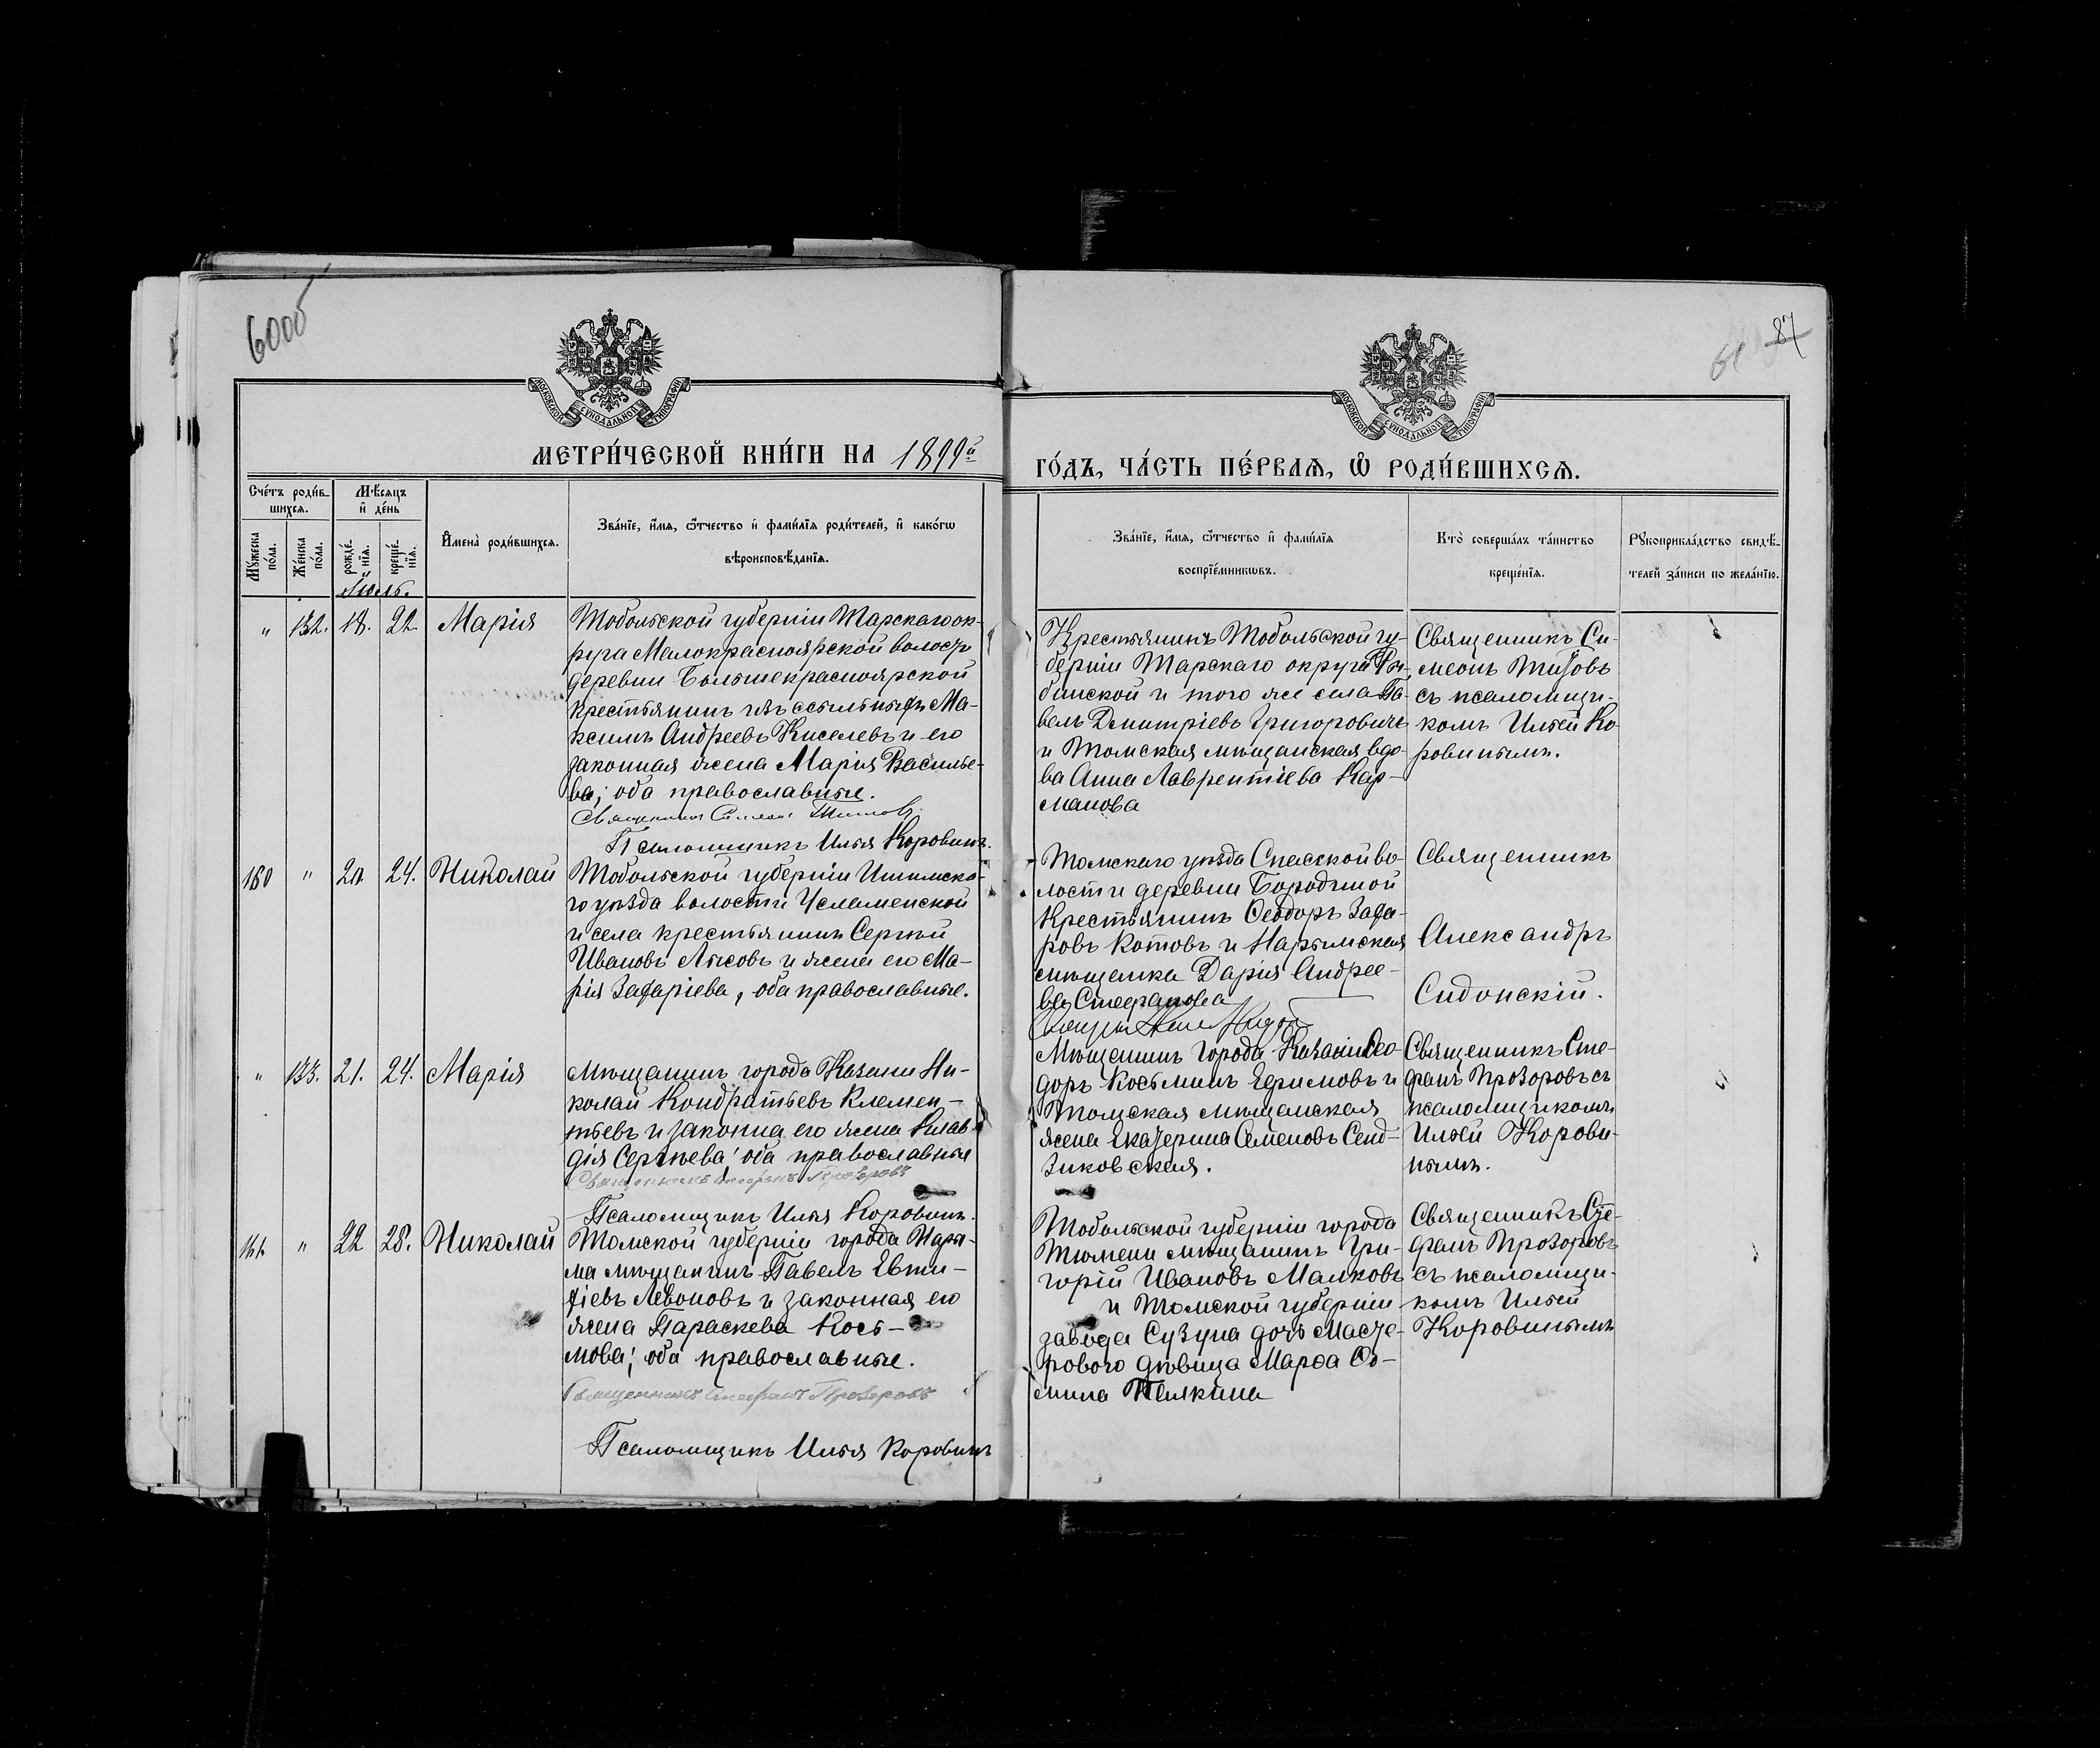 600б
87
61
МОСКОВСКОЙ СѴНОДАЛЬНОЙ ТИПОГРАФІИ
МОСКОВСКОЙ СѴНОДАЛЬНОЙ ТИПОГРАФІИ
МЕТРИ́ЧЕСКОЙ КНИ́ГИ НА 1899й
ГО́ДЪ, ЧА́СТЬ ПЕ́РВАѦ, Ѡ҆ РОДИ́ВШИХСѦ.
Сче́тъ роди́в-
шихсѧ.
Мѣ́сѧцъ
и҆ де́нь
Мꙋ́жеска
по́ла.
Же́нска
по́ла.
рожде́-
нїѧ.
креще́-
нїѧ.
И҆мена̀ роди́вшихсѧ.
Зва́нїе, и҆́мѧ, ѻ҆́тчество и҆ фами́лїѧ роди́телей, и҆ како́гѡ
вѣроисповѣ́данїѧ.
Зва́нїе, и҆́мѧ, ѻ҆́тчество и҆ фами́лїѧ
воспрїе́мникѡвъ.
Кто̀ соверша́лъ та́инство
креще́нїѧ.
Рꙋкоприкла́дство свидѣ́-
телей за́писи по жела́нїю.
Іюль.
" 132. 18. 22. Марія
Тобольской губерніи Тарскаго ок-
руга Малокрасноярской волости
деревни Большекрасноярской
крестьянинъ изъ ссыльныхъ Ма-
ксимъ Андреевъ Киселевъ и его
законная жена Марія Василье-
ва; оба православные.
Священникъ Симеонъ Титовъ
Псаломщикъ Илья Коровинъ.
Крестьянинъ Тобольской гу-
берніи Тарскаго округа Ры-
бинской и того же села Па-
велъ Дмитріевъ Григоровичъ
и Томская мѣщанская вдо-
ва Анна Лаврентіева Кар-
манова
Священникъ Си-
меонъ Титовъ
съ псаломщи-
комъ Ильей Ко-
ровинымъ.
160 " 20 24. Николай
Тобольской губерніи Ишимска-
го уѣзда волости Усламенской
и села крестьянинъ Сергѣй
Ивановъ Лысовъ и жена его Ма-
рія Захаріева, оба православные.
Томскаго уѣзда Спасской во-
лости деревни Бородиной
крестьянинъ Ѳеодоръ Заха-
ровъ Котовъ и Нарымская
мѣщанка Дарія Андрее-
ва Стефанова
Священникъ
Александръ
Сидонскій.
" 133. 21. 24. Марія
Мѣщанинъ города Казани Ни-
колай Кондратьевъ Клемен-
тьевъ и законна его жена Клав-
дія Сергѣева; оба православные
Священникъ Стефанъ Прозоровъ
Псаломщикъ Илья Коровинъ.
Мѣщанинъ города Казани Ѳео-
доръ Косьминъ Ефимовъ и
Томская мѣщанская
жена Екатерина Семеновъ Сенд-
зиковская.
Священникъ Сте-
фанъ Прозоровъ съ
псаломщикомъ
Ильей Корови-
нымъ.
161. " 22 28. Николай
Томской губерніи города Нары-
ма мѣщанинъ Павелъ Евти-
фіевъ Левоновъ и законная его
жена Параскева Кось-
мова; оба православные.
Священникъ Стефанъ Прозоровъ
Псаломщикъ Илья Коровинъ
Тобольской губерніи города
Тюмени мѣщанинъ Гри-
горій Ивановъ Малковъ
и Томской губерніи
завода Сузуна дочь Масте-
рового дѣвица Марѳа Ѳо-
мина Пелякина
Священникъ Сте-
фанъ Прозоровъ
съ псаломщи-
комъ Ильей
Коровинымъ